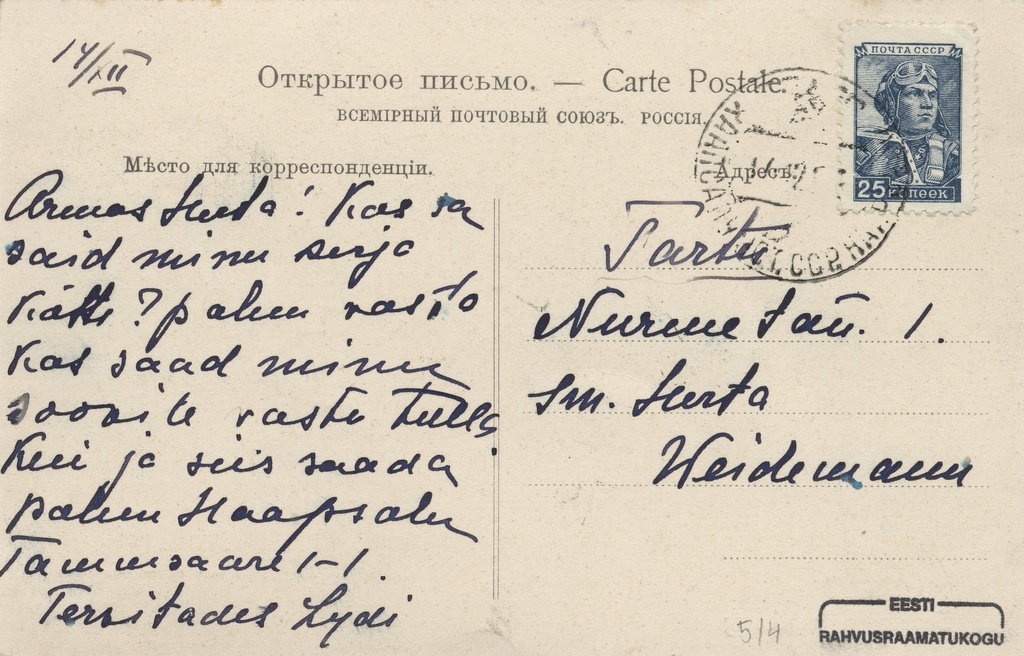 14/XII
Открытое письмо. — Carte Postale.
ВСЕМІРНЫЙ ПОЧТОВЫЙ СОЮЗЪ. РОССІЯ.
Мѣсто для корреспонденціи.
Адресъ.
ПОЧТА СССР
25 копеек
Armas Herta! Kas sa
said minu kirja
Kätte? palun vasta
Kas saad minu
soovile vastu tulla
Kui ja siis saada
palun Haapsalu
Tammsaare 1-1
Tervitades Lydi
Tartu
Nurme tän. 1.
Sm. Herta
Weidemann
5/4
EESTI
RAHVUSRAAMATUKOGU